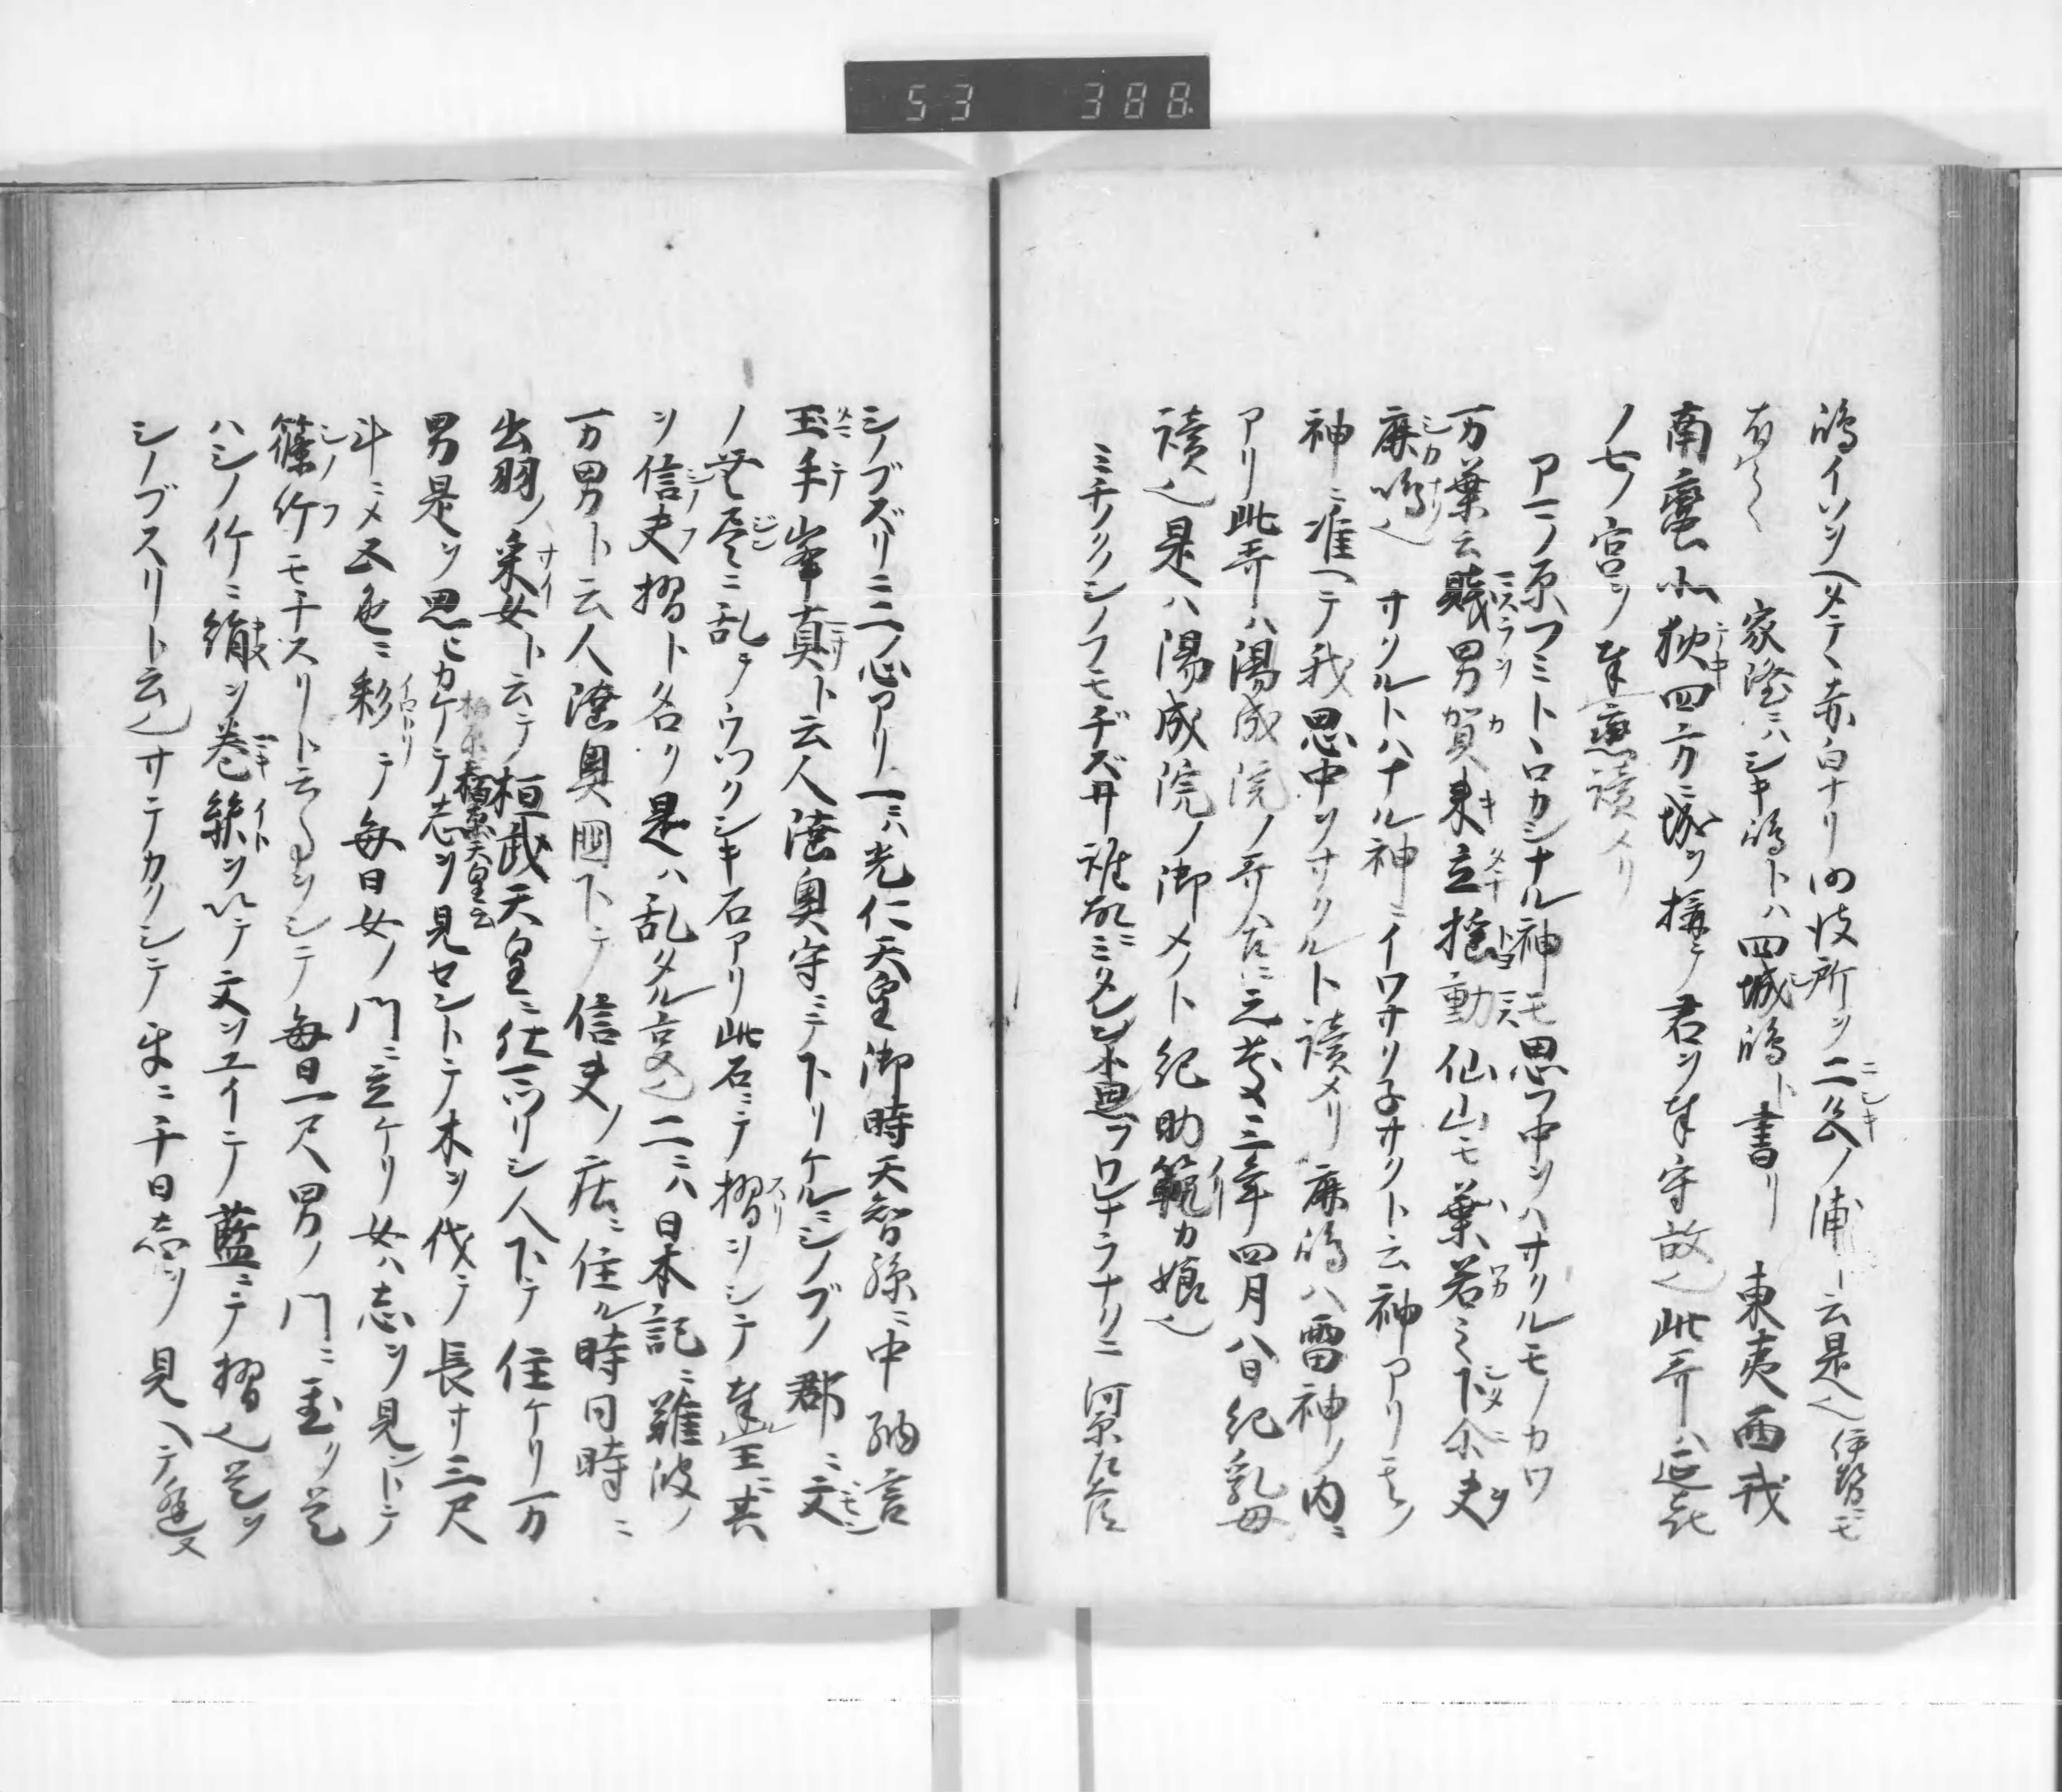 53 388
嶋イソノヘメテ赤白ナリ四伎所ヲ二色ノ浦ト云是也伊勢ニモ
有也 家隆ニハシキ嶋トハ四城嶋ト書リ 東夷西戎
南蛮北狄四方ニ城ヲ搆テ君ヲ奉守故也此哥ハ延喜
ノ七ノ宮ヲ奉恋読メリ
アマノ原フミトヽロカシナル神モ思フ中ヲハサクルモノカワ
万葉云賤男賀来立搖動仙山モ葉若ミ下尓夫
鹿鳴也 サクルトハナル神ニイワサリ子サクト云神アリモノ
神ニ准ヘテ我思中ヲサクルト読メリ鹿鳴ハ雷神ノ内ニ
アリ此哥ハ陽成院ノ哥合ニ元慶三年四月八日紀乳母
読也是ハ陽成院ノ御メノト紀助範カ娘也
ミチノクノシノフモヂズリ誰故ニミタレント思フワレナラナクニ 河原左大臣
シノブズリニ二ノ心アリ一ニハ光仁天皇御時天智孫ニ中納言
玉手峯真ト云人陸奥守ニテ下リケルニシノブノ郡ニ文
ノ無尽ニ乱テウツクシキ石アリ此石ニテ摺ヲシテ奉王ニ其
ヲ信夫摺ト名リ是ハ乱タル文也二ニハ日本記ニ難波ノ
万男ト云人陸奥国下テ信夫ノ庄ニ住ル時同時ニ
出羽ノ采女ト云テ桓武天皇ニ仕マツリシ人下テ住ケリ万
柏原天皇云
男是ヲ思ヒカケテ志ヲ見セントテ木ヲ伐テ長サ三尺
斗ニメ五色ニ彩テ毎日女ノ門ニ立ケリ女ハ志ヲ見ントテ
篠竹モチスリト云事ヲシテ毎日一尺男ノ門ニ至リ是
ハシノ竹ニ緻ヲ巻糸ヲ以テ文ヲユイテ藍ニテ摺也是ヲ
シノブスリト云也サテカクシテ互ニ千日志ヲ見ヘテ逢又